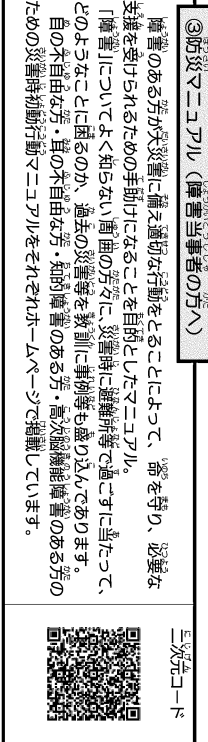 ③防災マニュアル（障害当事者の方へ）
障害のある方が大災害に備え適切な行動をとることによって、命を守り、必要な
支援を受けられるための手助けになることを目的としたマニュアル。
「障害」についてよく知らない周囲の方々に、災害時に避難所等で過ごすに当たって、
どのようなことに困るのか、過去の災害等を教訓に事例等も盛り込んであります。
目の不自由な方・耳の不自由な方・知的障害のある方・高次脳機能障害のある方の
ための災害時初動行動マニュアルをそれぞれホームページで掲載しています。
二次元コード